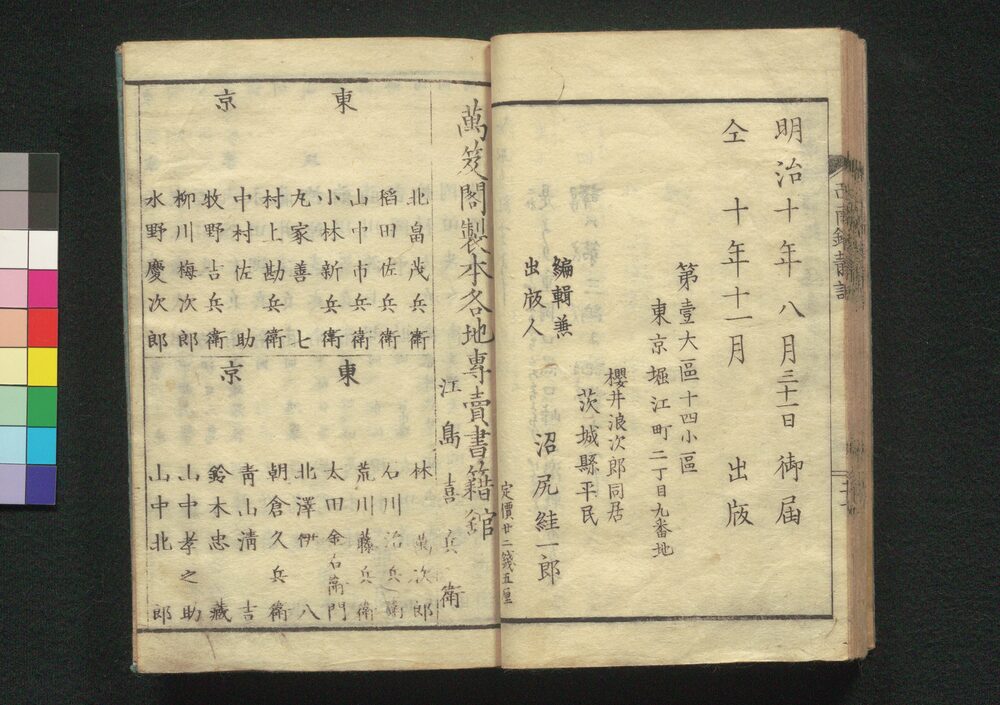 明治十年八月三十一日御届
仝十年十一月出版
第壹大區十四小區
東京堀江町二丁目九番地
櫻井浪次郎同居
茨城縣平民
編輯兼
出版人
沼尻絓一郎
定價廿二錢五厘
萬笈閣製本各地專賣書籍舘
江島喜兵衛
東京
北畠茂兵衛
稻田佐兵衛
山中市兵衛
小林新兵衛
丸家善七
村上勘兵衛
中村佐助
牧野吉兵衛
柳川梅次郎
水野慶次郎
東京
林萬次郎
石川治兵衛
荒川藤兵衛
太田金右衛門
北澤伊八
朝倉久兵衛
靑山淸吉
鈴木忠藏
山中孝之助
山中北郎